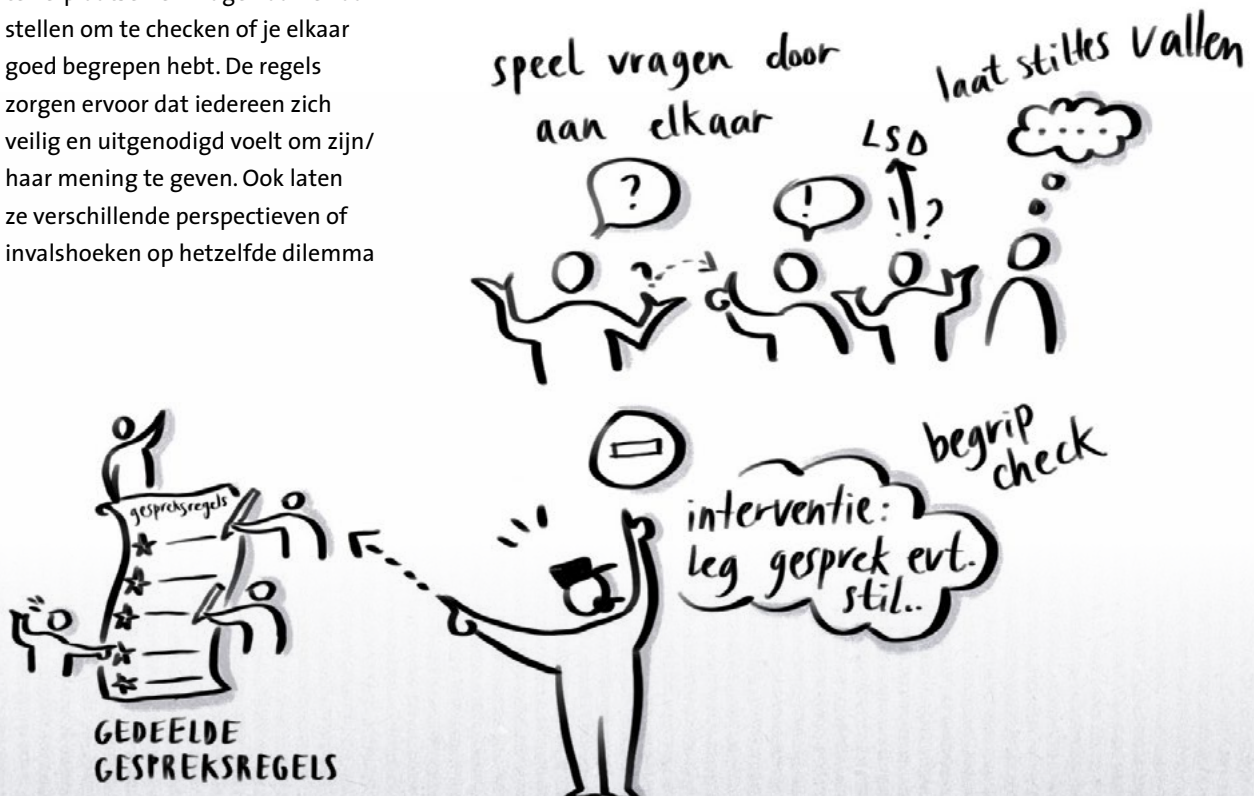 stellen om te checken of je elkaar
goed begrepen hebt. De regels
zorgen ervoor dat iedereen zich
veilig en uitgenodigd voelt om zijn/
haar mening te geven. Ook laten
ze verschillende perspectieven of
invalshoeken op hetzelfde dilemma
speel vragen door
aan elkaar
laat stiltes vallen
?
!
LSD
! ?
.....
?
begrip
check
interventie:
leg gesprek evt.
stil..
gespreksregels
GEDEELDE
GESPREKSREGELS